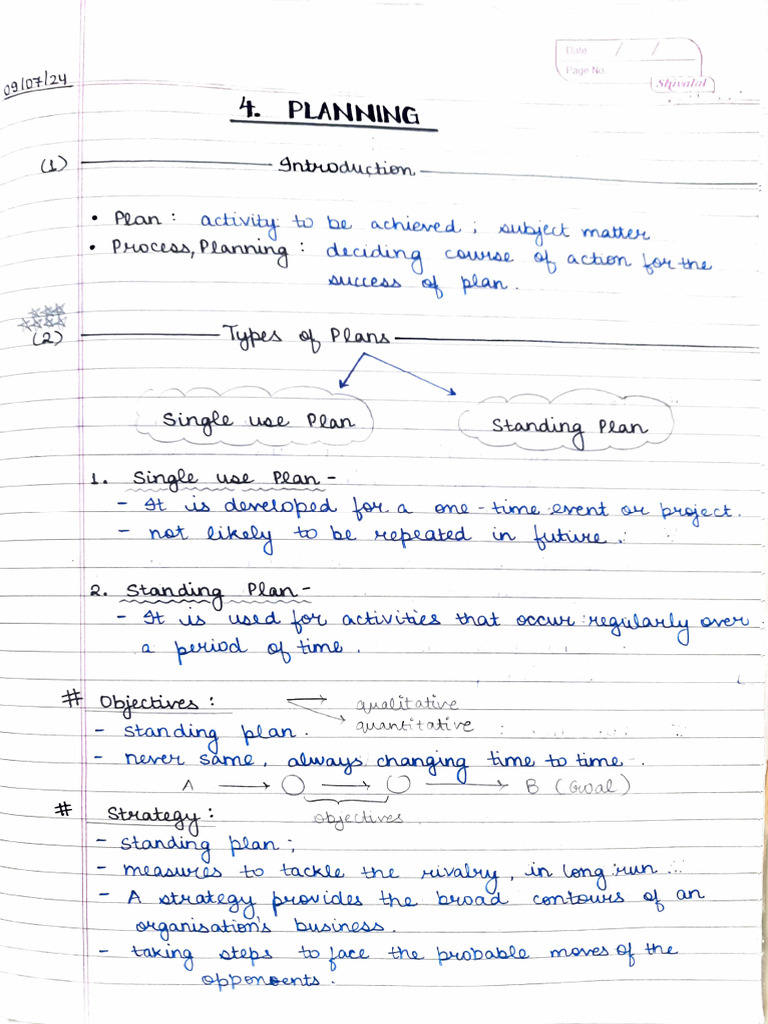 Date / /
Page No.
Shivalal
09/07/24
4. PLANNING
(1) Introduction
• Plan : activity to be achieved ; subject matter
• Process, Planning : deciding course of action for the
success of plan.
(2) Types of Plans
Single use Plan
Standing Plan
1. Single use Plan -
- It is developed for a one - time event or project.
- not likely to be repeated in future.
2. Standing Plan -
- It is used for activities that occur regularly over
a period of time.
# Objectives : → qualitative
quantitative
- standing plan.
- never same, always changing time to time.
A → ○ → ○ → B (Goal)
objectives
# Strategy :
- standing plan ;
- measures to tackle the rivalry, in long run
- A strategy provides the broad contours of an
organisation's business.
- taking steps to face the probable moves of the
opponents.